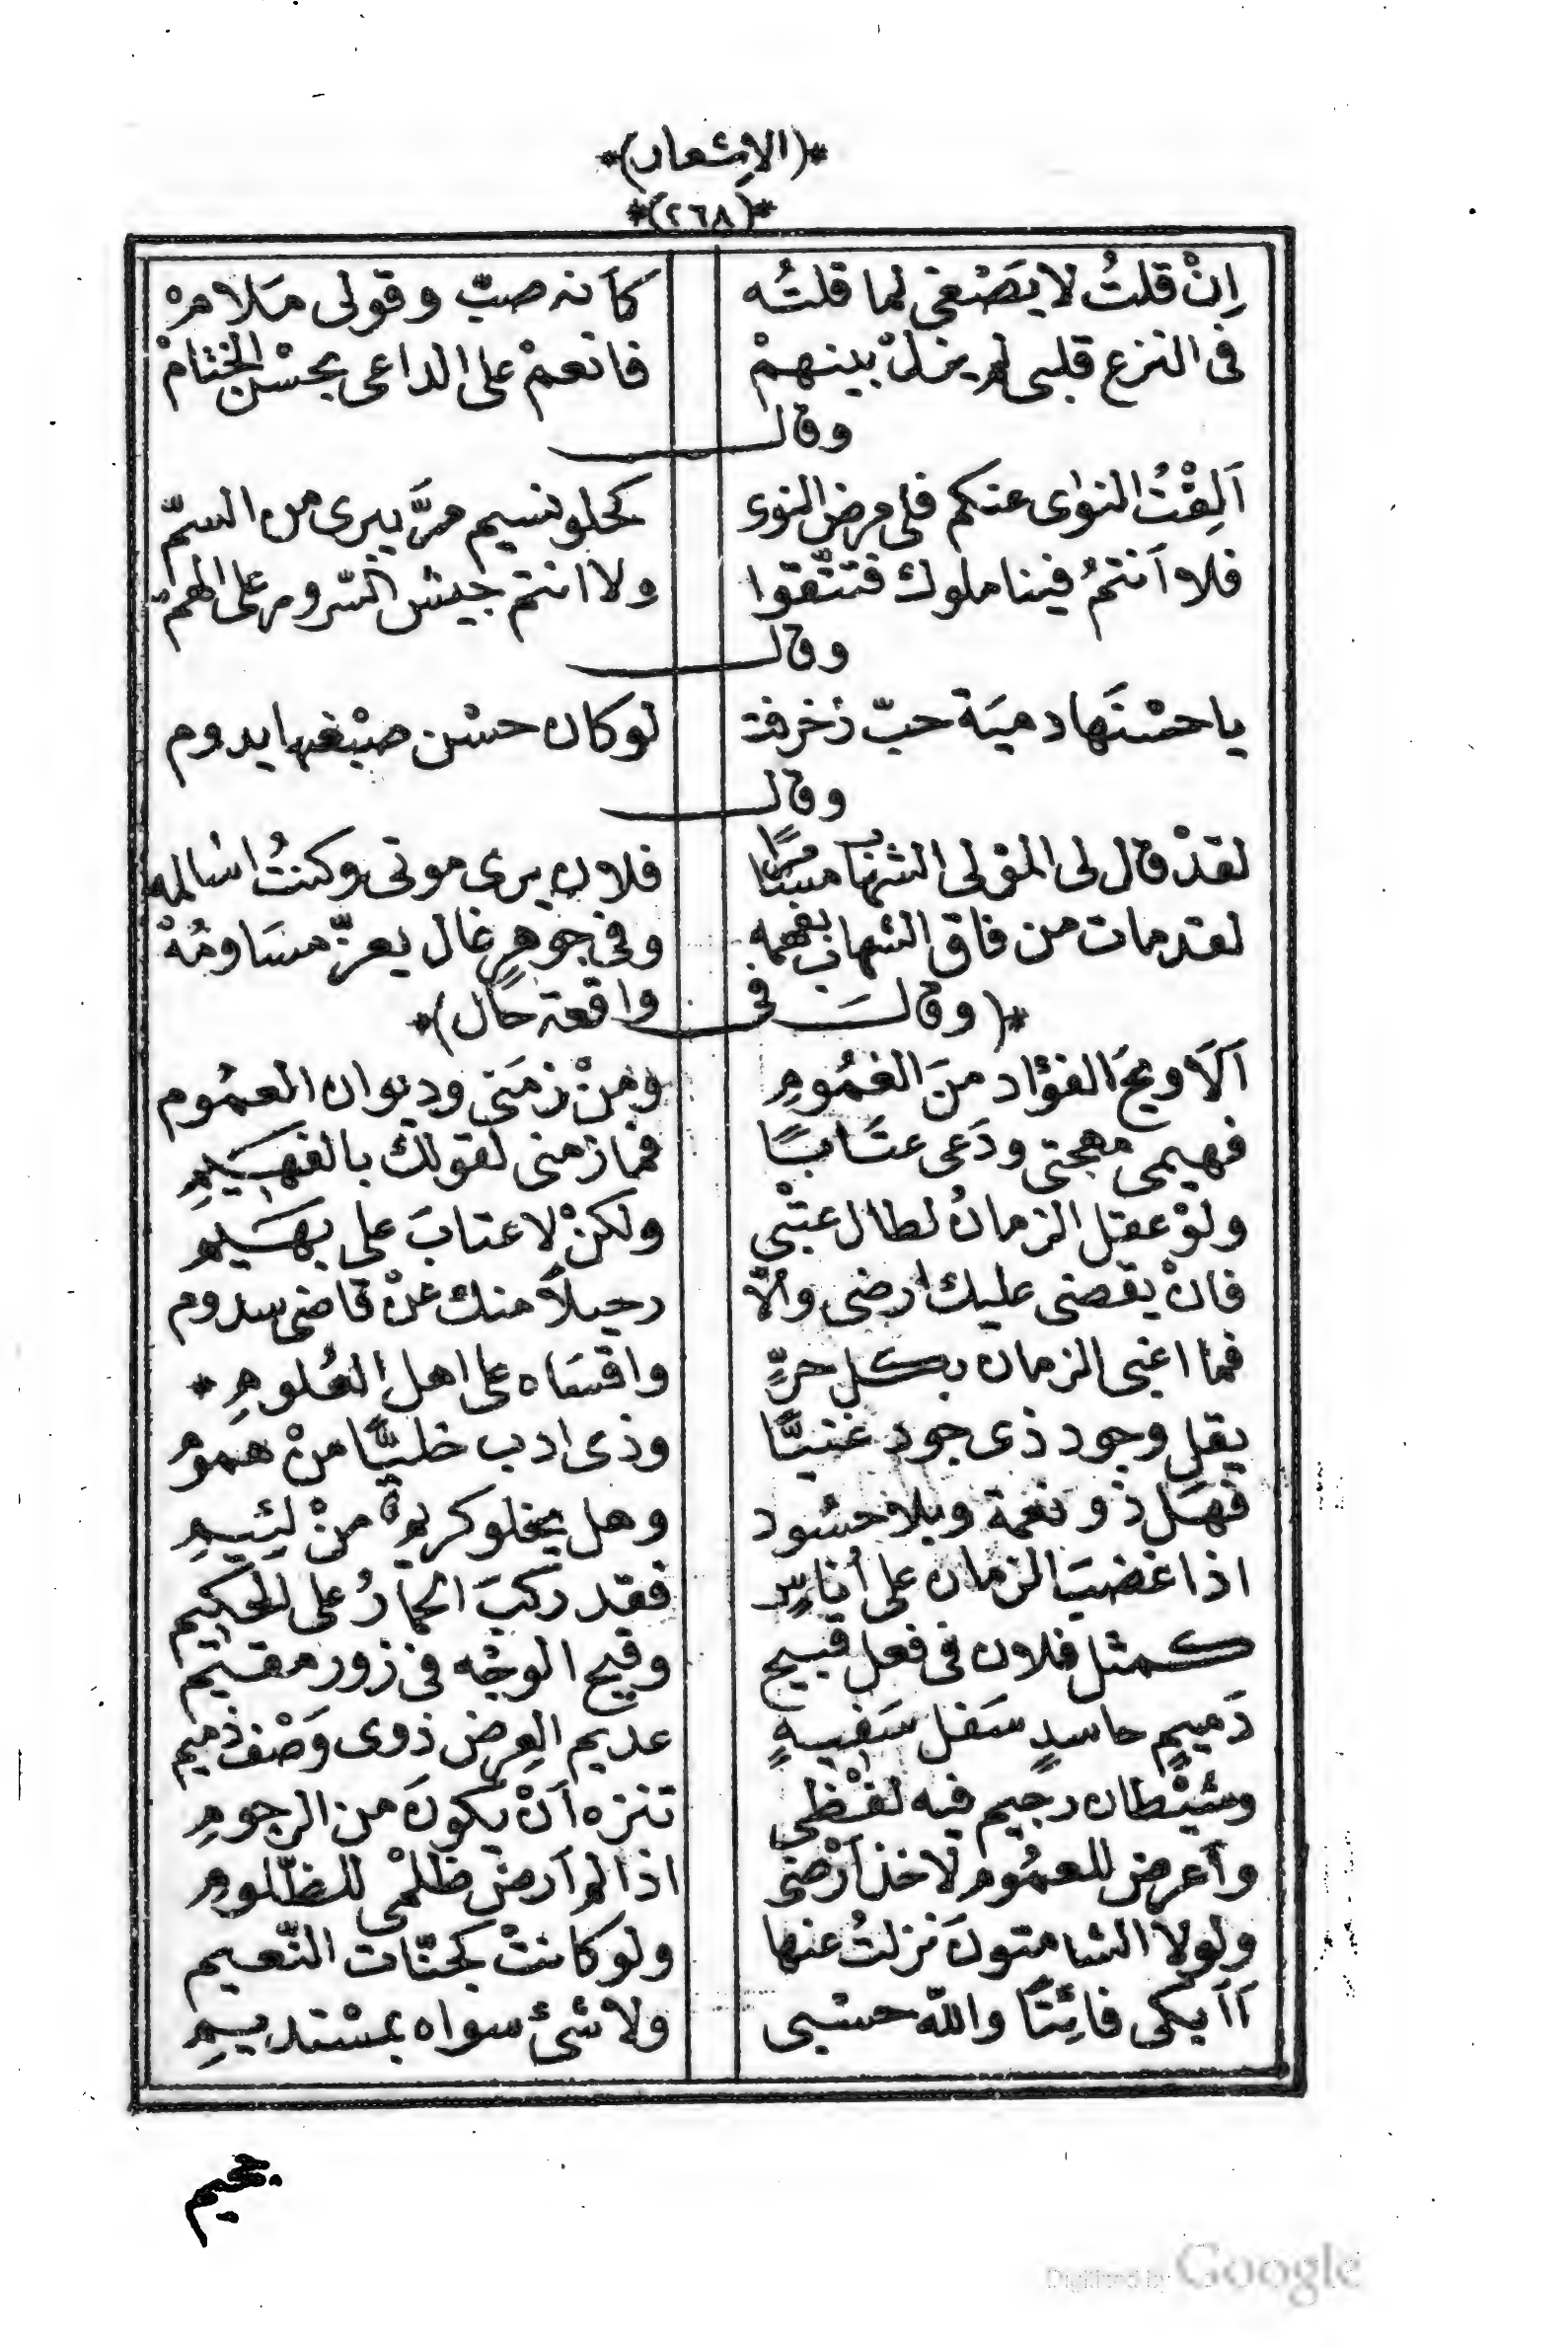 *(الاشعار)*
*(٢٦٨)*
اِنْ قلتُ لا يَصْغى لما قلتُه كأنه صبّ وقولى مَلامْ
فى النزع قلبى لم يزلْ بينهمْ فانعمْ على الداعى بحسْن الختامْ
وقال
اَلِفْتُ النوى عنكم فلى مرض النوى كحلو نسيم مرَّ يبرى من السمّ
فلا اَنتمُ فينا ملوك فتتّقوا ولا انتم جيش السّرور على الهمّ
وقال
يا حسْنَها دميَة حبّ زخرفت لو كان حسْن صبْغها يدوم
وقال
لقدْ قال لى المولى الشهاب مبشرًا فلان يرى موتى وكنتُ اسالمه
لقد مات من فاق الشهاب بفهمه وفى جوهرٍ غال يعزّ مسَاومُهْ
*(وقالَ فى واقعة حال)*
اَلَا ويحَ الفؤاد منَ الغمُومِ ومنْ زمَنى وديوان العمُوم
فهيمى مهجتى ودَعى عتَابًا فما زمنى لقولك بالفهَيمِ
ولوْ عقل الزمانُ لطال عتْبى ولكنْ لا عتابَ على بهَيم
فانْ يقضى عليك ارضى والّا رحيلاً منك عنْ قاضى سدوم
فما اغبى الزمان بكل حرٍّ واقسَاه على اهل العُلومِ *
يقل وجود ذى جود غنيًّا وذى ادب خليًّا منْ هموم
فهَل ذو نعمة وبلا حسُود وهل يخلو كريمٌ منْ لئيمِ
اذا غضبَ الزمان على اُناسٍ فقد ركبَ الحمارُ على الحكيم
كمثل فلان فى فعل قبيح وقيح الوجْه فى زور مقيم
دَميمٍ حاسدٍ سَفل سَفيهٍ عديم العِرض ذوى وَصْف ذميم
وشيْطان رجيم فيه لفْظى تنزه اَنْ يكونَ من الرجومِ
واَعرض للعمُوم لاخذ اَرْضى اذا لم اَرض ظلمْى للظّلومِ
ولولا الشامتونَ نزلتُ عنها ولو كانتْ كجنّات النّعيم
اَاَبكى فائِتًا واللّه حسْبى ولا شئ سواه بمسْتديمِ
جحيم
Digitized by Google